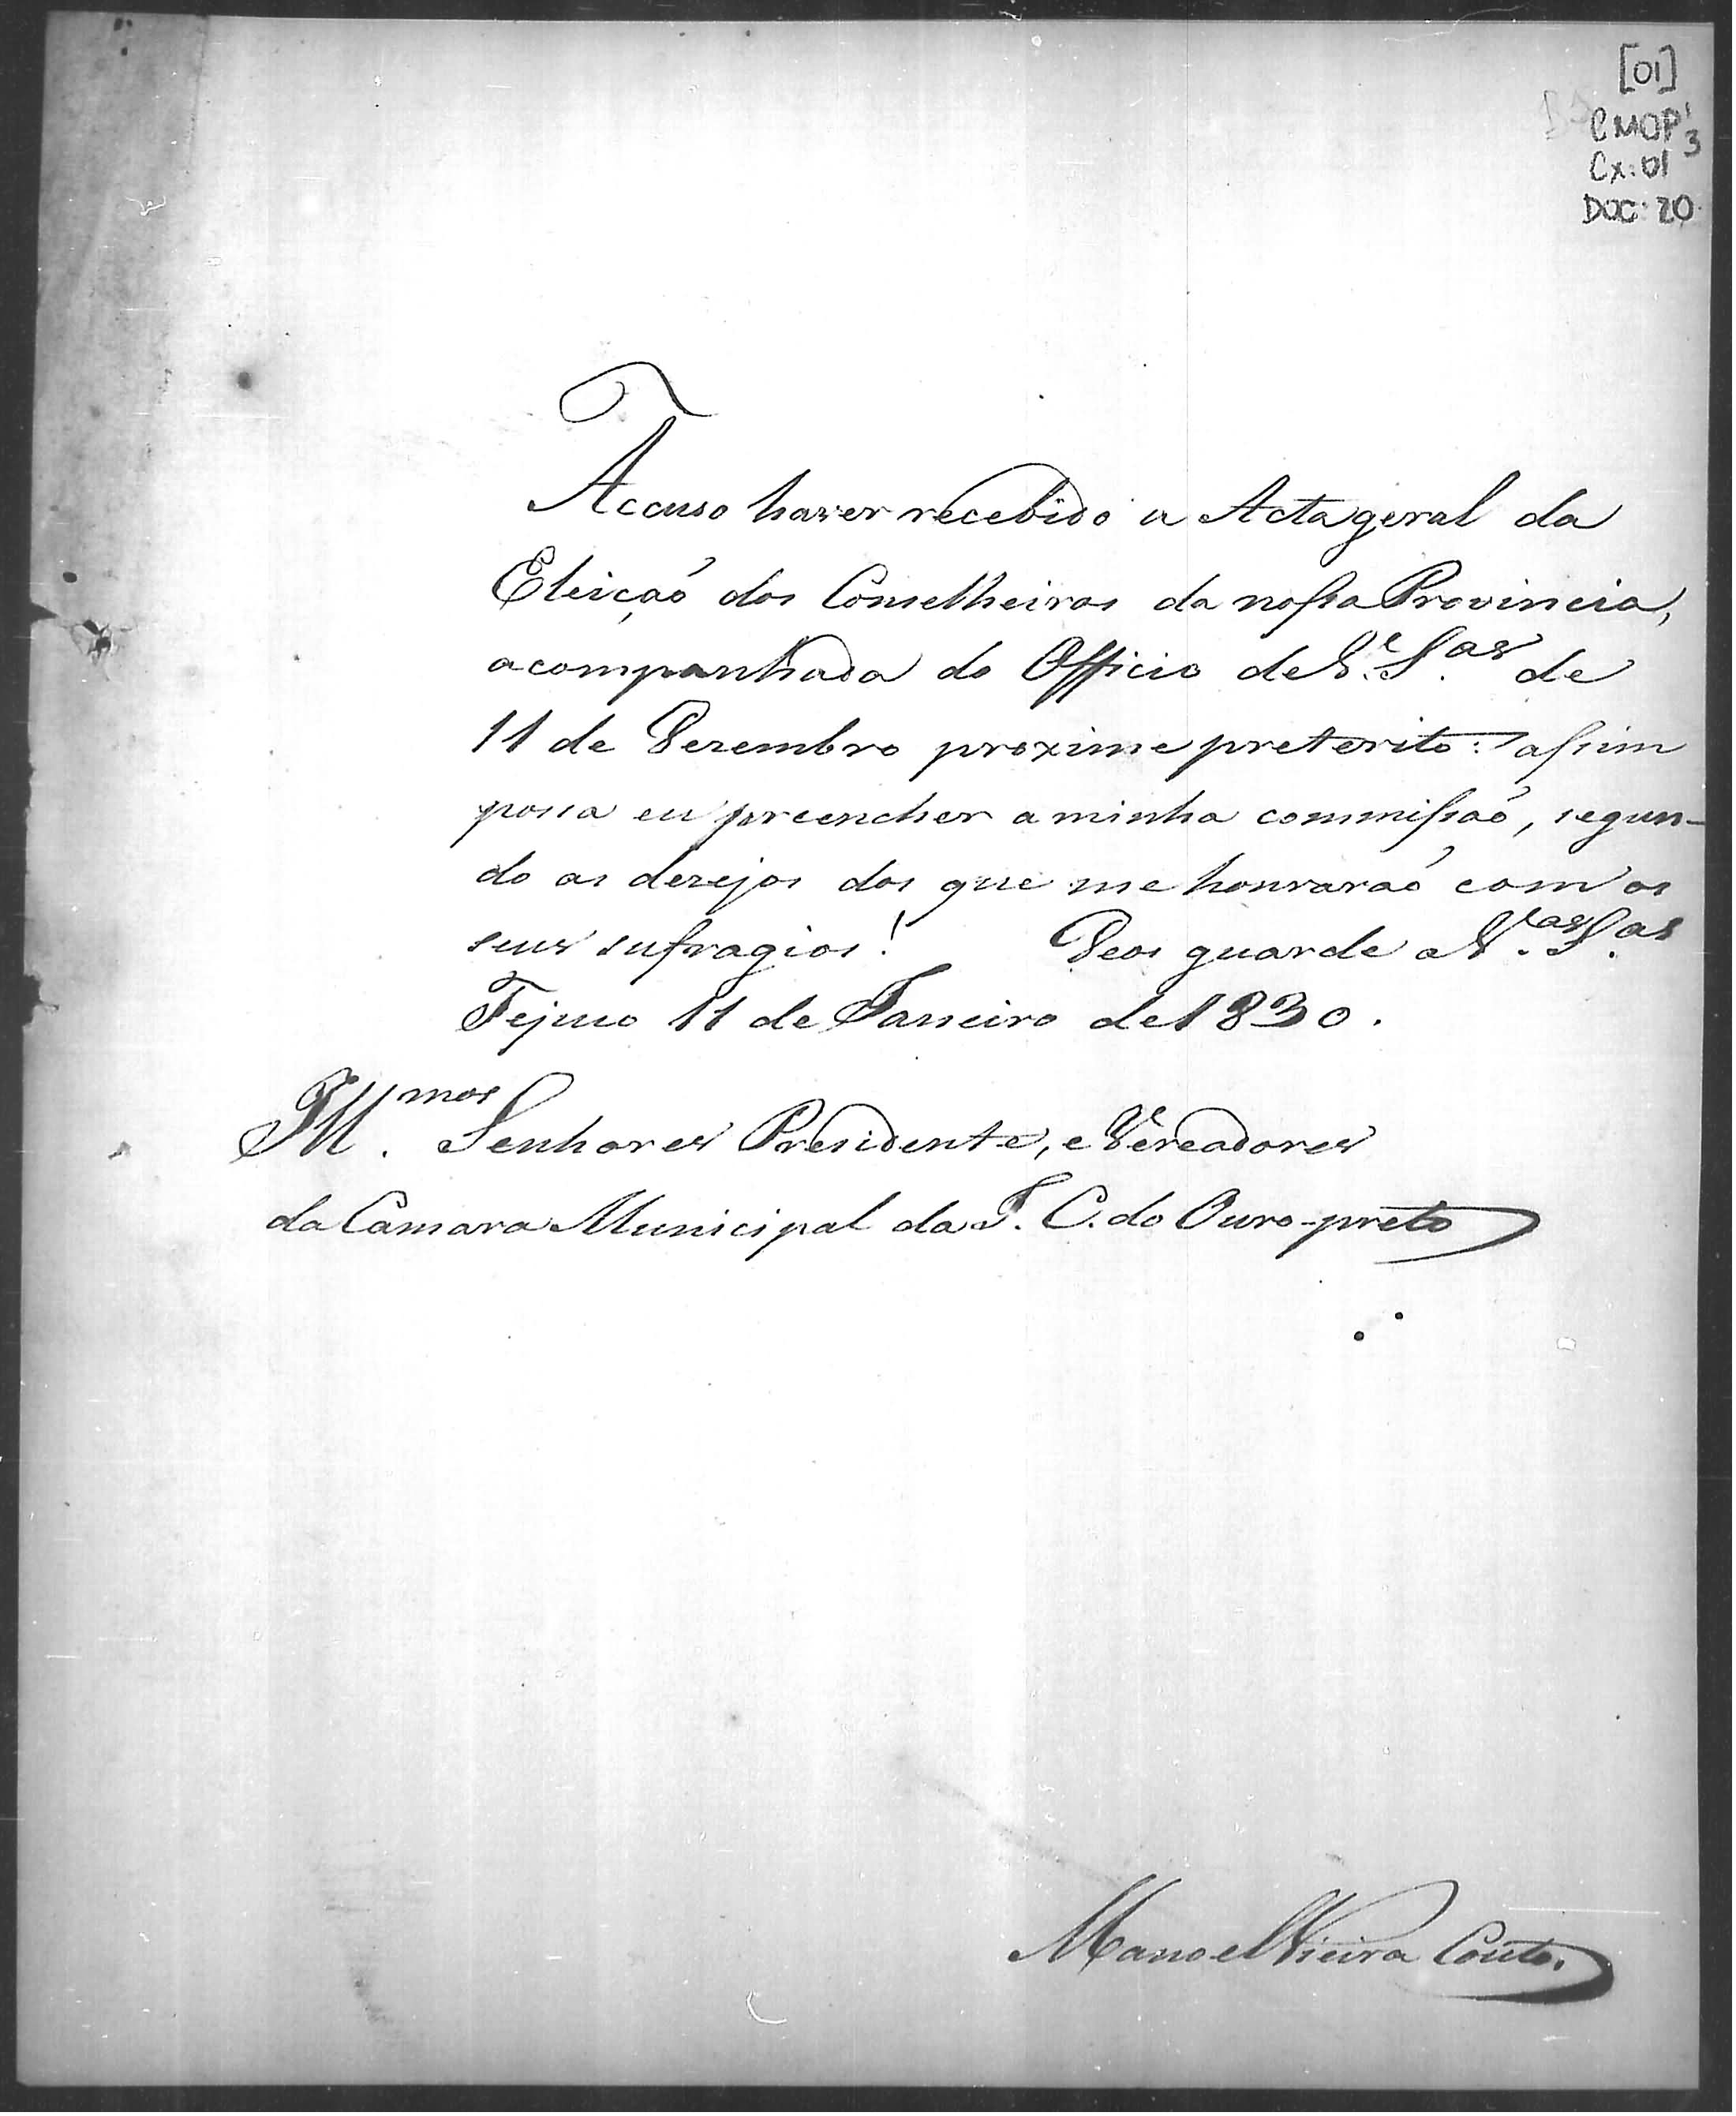 [01]
CMOP 1/3
Cx: 01
DOC: 20
Accuso haver recebido a Acta geral da
Eleiçaõ dos Conselheiros da nossa Provincia,
acompanhada do Officio de V.ᵉ S.ᵃˢ de
11 de Dezembro proxime preterito: assim
possa eu preencher a minha commissaõ, segun-
do as dezejos dos que me honraraõ com os
seus sufragios! Deos guarde a V.ᵃˢ S.ᵃˢ
Tejuco 11 de Janeiro de 1830.
Ill.ᵐᵒˢ Senhores Presidente, e Vereadores
da Camara Municipal da I. C. do Ouro-preto
Manoel Vieira Couto.